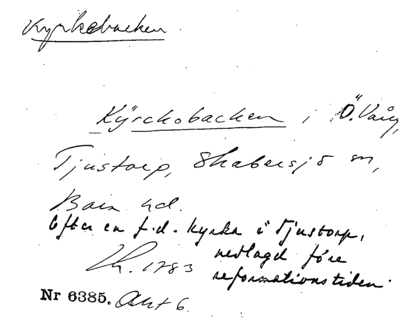 Kyrkebacken
Kÿrckobacken i Ö. Vång,
Tjustorp, Skabersjö sn,
Bara hd.
Efter en f.d. kyrka i Tjustorp,
nedlagd före
Lh. 1783 reformationstiden.
Nr 6385. Akt 6.